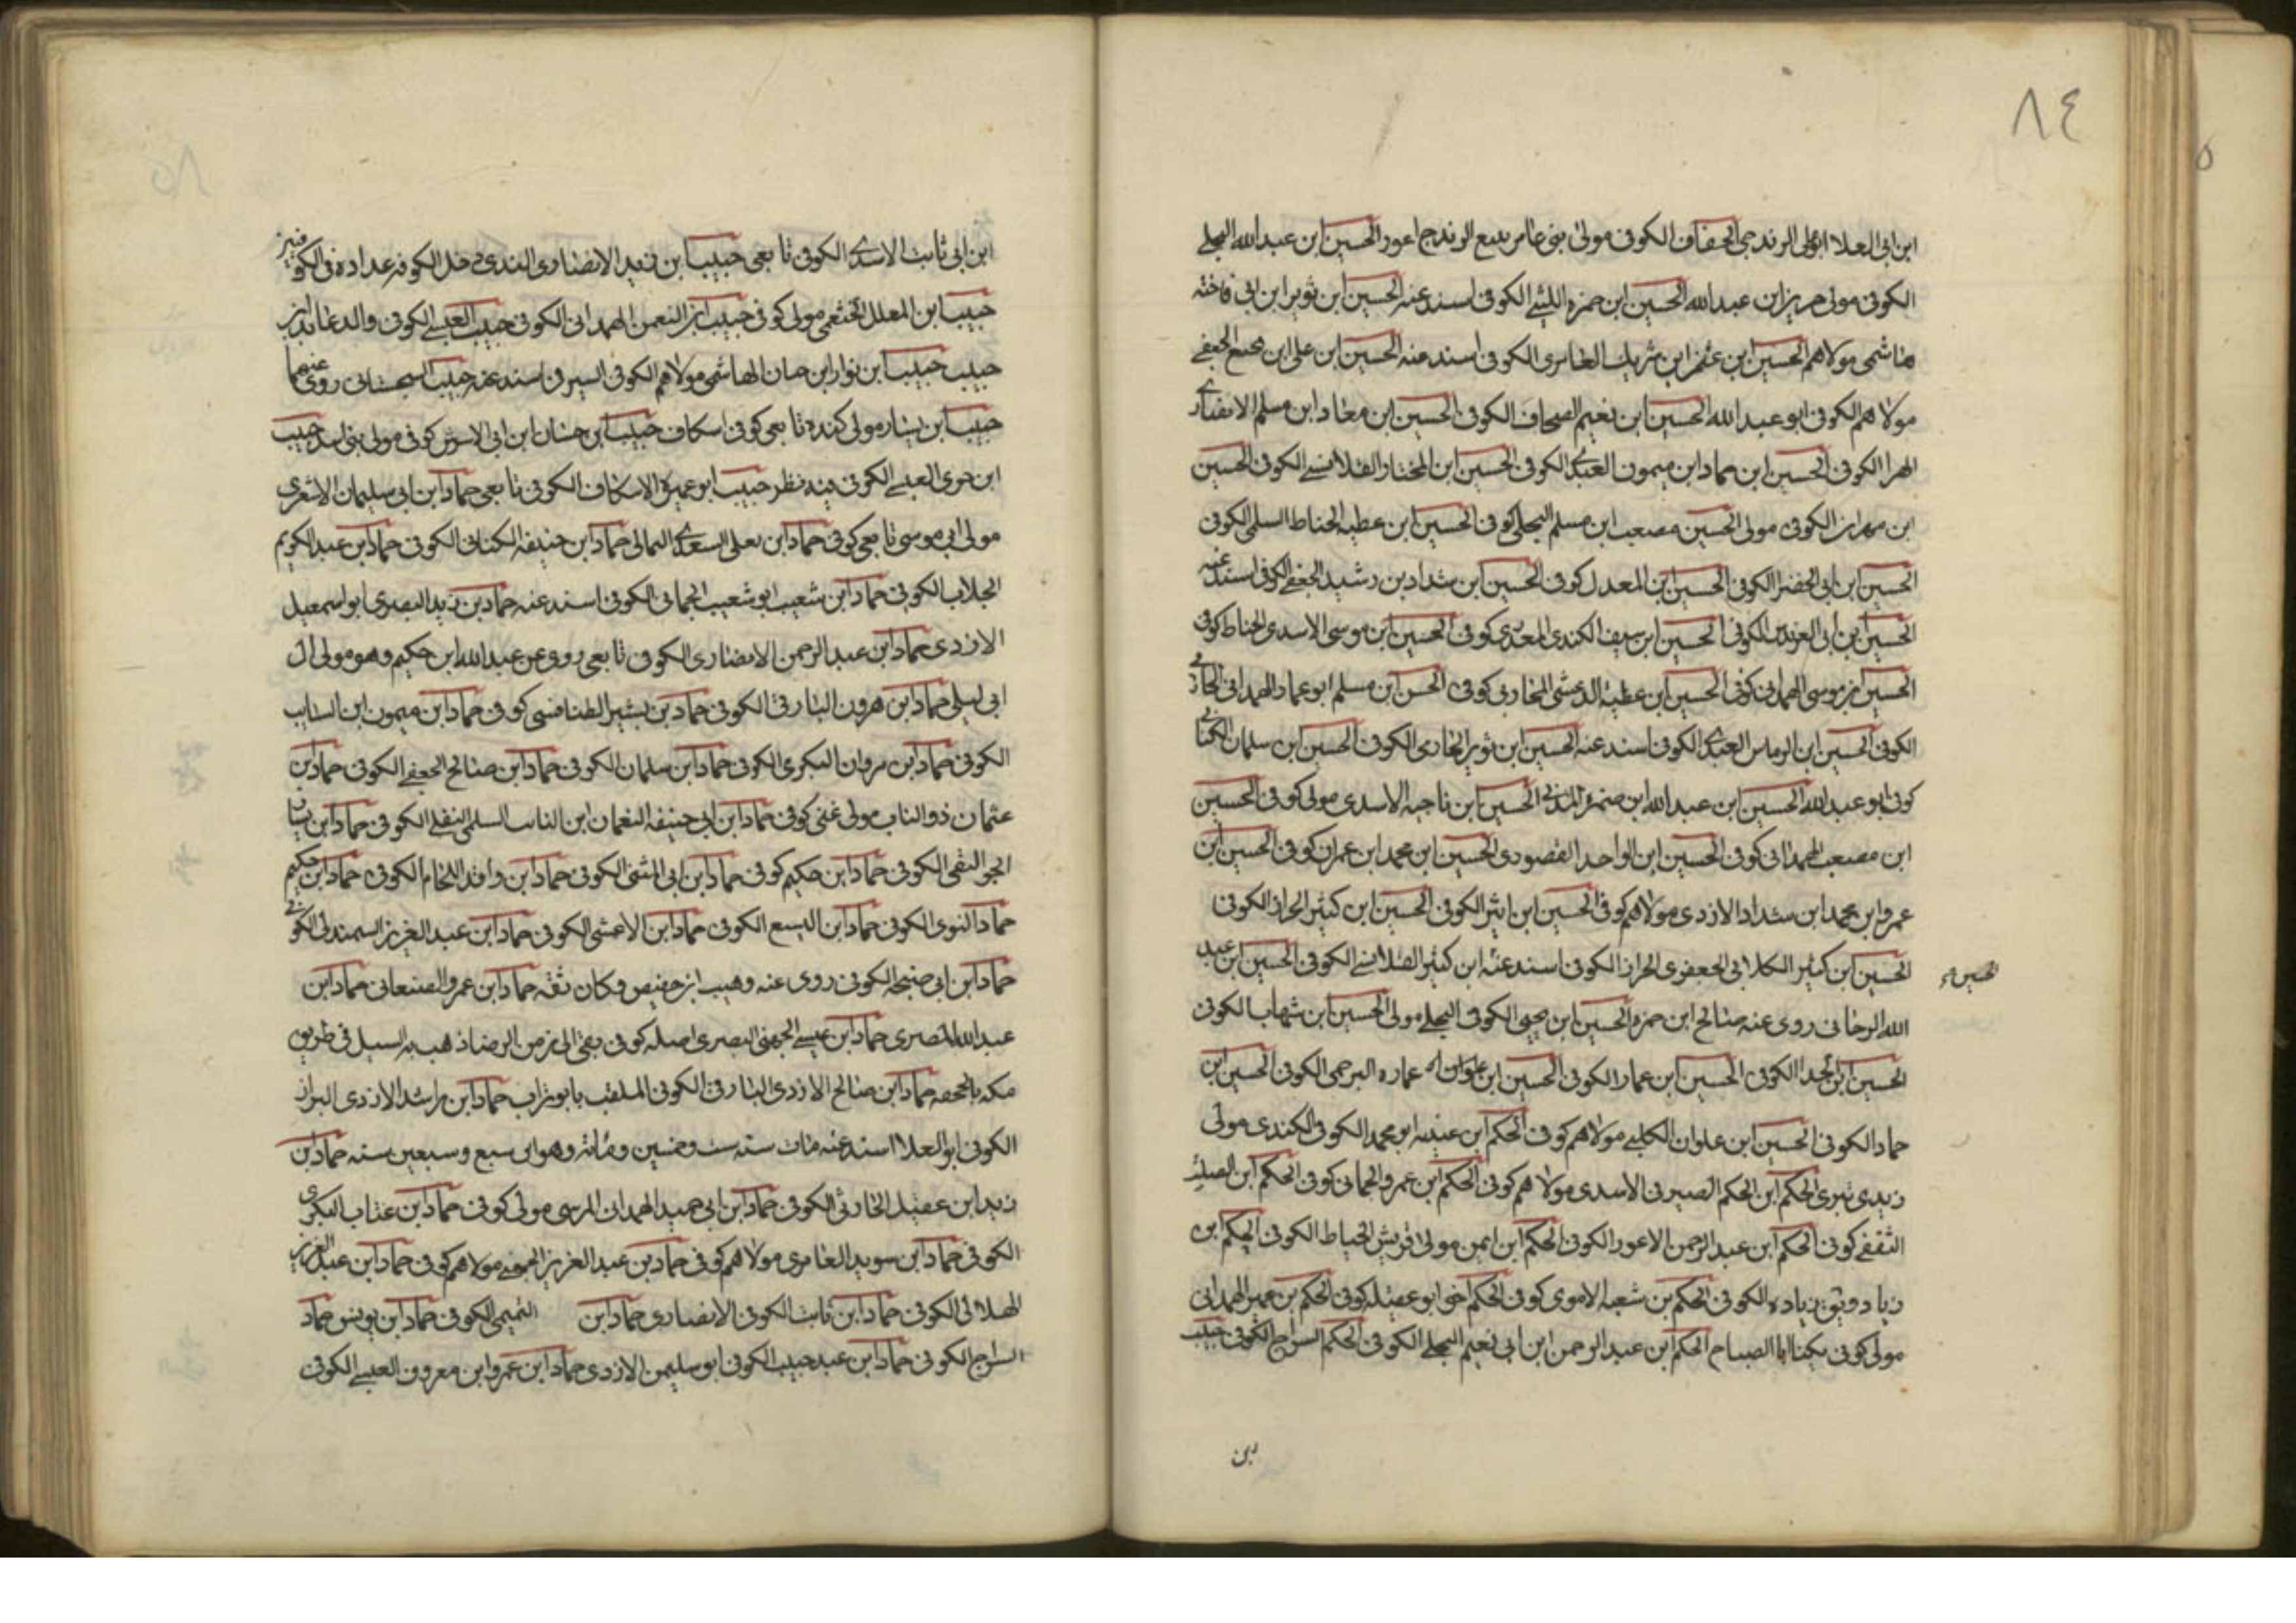 ٨٤
ابن ابى العلا ابو على الزندجى الخفاف الكوفى مولى بنى عامر يبيع الزندج اعور الحسين ابن عبد الله البجلى
الكوفى مولى جرير ابن عبد الله الحسين ابن حمزه الليثى الكوفى اسند عنه الحسين ابن ثوير ابن ابى فاخته
هاشمى مولاهم الحسين ابن عثمن ابن شريك العامرى الكوفى اسند عنه الحسين ابن على ابن الجعفى
مولاهم الكوفى ابو عبد الله الحسين ابن نعيم الصحاف الكوفى الحسين ابن معاد ابن مسلم الانصارى
الهرا الكوفى الحسين ابن حماد ابن ميمون العبدى الكوفى الحسين ابن المختار القلانسى الكوفى الحسين
ابن مهران الكوفى مولى الحسين مصعب ابن مسلم البجلى كوفى الحسين ابن عطيه الحناط السلمى الكوفى
الحسين ابن ابى الخضر الكوفى الحسين ابن المعدل كوفى الحسين ابن شداد بن رشيد الجعفى الكوفى اسند عنه
الحسين ابن ابى العرندس الكوفى الحسين ابن سيف الكندى العدى كوفى الحسين ابن موسى الاسدى الحناط كوفى
الحسين ابن موسى الهمدانى كوفى الحسين ابن عطيه الدغشى المحاربى كوفى الحسن ابن مسلم ابو عمار الهمدانى
الكوفى الحسين ابن الرماس العبدى الكوفى اسند عنه الحسين ابن ثوير الحازمى الكوفى الحسين ابن سلمان الكنانى
كوفى ابو عبد الله الحسين ابن عبد الله ابن ضمره المدنى الحسين ابن ناجيه الاسدى مولى كوفى الحسين
ابن مصعب الهمدانى كوفى الحسين ابن الواحد القصودى الحسين ابن محمد ابن عمران كوفى الحسين ابن
عمرو ابن محمد ابن شداد الازدى مولاهم كوفى الحسين ابن اثير الكوفى الحسين ابن كثير الخزاز الكوفى
الحسين ابن كثير الكلابى الجعفرى الخزاز الكوفى اسند عنه ابن كثير القلانسى الكوفى الحسين ابن عبيد
الحسين
الله الرجانى روى عنه صالح ابن حمزه الحسين ابن يحيى الكوفى البجلى مولى الحسين ابن شهاب الكوفى
الحسين ابن ابجد الكوفى الحسين ابن عمار الكوفى الحسين ابن علوان عماره البرجمى الكوفى الحسين ابن
حماد الكوفى الحسين ابن علوان الكلبى مولاهم كوفى الحكم ابن عتيبه ابو محمد الكوفى الكندى مولى
زيدى تبرى الحكم ابن الحكم الصيرفى الاسدى مولاهم كوفى الحكم ابن عمرو الجمانى كوفى الحكم ابن الصلت
الثقفى كوفى الحكم ابن عبد الرحمن الاعور الكوفى الحكم ابن ايمن مولى قريش الخياط الكوفى الحكم ابن
زياد زياده الكوفى الحكم بن شعبه الاموى كوفى الحكم اخو ابو عقيله كوفى الحكم بن عمير الهمدانى
مولى كوفى يكنا ابا الصباح الحكم ابن عبد الرحمن ابن ابى نعيم البجلى الكوفى الحكم السراج الكوفى حبيب
بن
ابن ابى ثابت الاسدى الكوفى تابعى حبيب ابن زيد الانصارى الندى دخل الكوفه عداده فى الكوفيين
حبيب ابن المعلل الخثعمى مولى كوفى حبيب ابن النعمن الهمدانى الكوفى حبيب العبسى الكوفى والد عائذ ابن
حبيب حبيب ابن نوار ابن حسان الهاشمى مولاهم الكوفى السيرفى اسند عنه حبيب السجستانى روى عنهما
حبيب ابن بشار مولى كنده تابعى كوفى اسكاف حبيب ابن حسان ابن ابى الاشرس كوفى مولى بنى اسد حبيب
ابن جرى العبسى الكوفى فيه نظر حبيب ابو عميره الاسكاف الكوفى تابعى حماد ابن ابى سليمان الاشعرى
مولى ابى موسى تابعى كوفى حماد ابن يعلى السعدى الثمالى حماد ابن حنيفه الكنانى الكوفى حماد ابن عبد الكريم
الجلاب الكوفى حماد ابن شعيب ابو شعيب الحمانى الكوفى اسند عنه حماد بن زيد البصرى ابو اسمعيل
الازدى حماد ابن عبد الرحمن الانصارى الكوفى تابعى روى عن عبد الله ابن حكيم وهو مولى ال
ابى ليلى حماد ابن هرون البارقى الكوفى حماد بن بشير الطنافسى كوفى حماد ابن ميمون ابن السايب
الكوفى حماد ابن مروان البكرى الكوفى حماد ابن سلمان الكوفى حماد ابن صالح الجعفى الكوفى حماد ابن
عثمان ذو الناب مولى غنى كوفى حماد ابن ابى حنيفه النعمان ابن الثابت السلمى الكوفى حماد ابن
الكوفى حماد ابن حكيم كوفى حماد ابن ابى المثنى الكوفى حماد ابن واقد اللحام الكوفى حماد ابن حكيم
حماد النوى الكوفى حماد ابن اليسع الكوفى حماد ابن الاعشى الكوفى حماد ابن عبد العزيز السمندلى الكوفى
حماد ابن ابى الكوفى روى عنه وهيب ابن حفيص وكان ثقه حماد ابن عمرو الصنعانى حماد ابن
عبد الله المصرى حماد ابن عيسى الجهنى البصرى اصله كوفى بقى الى زمن الرضا ذهب به السيل فى طريق
مكه بالجحفه حماد ابن صالح الازدى البارقى الكوفى الملقب بابو تراب حماد ابن راشد الازدى البزاز
الكوفى ابو العلا اسند عنه مات سنه ست وخمسين ومائه وهو ابن سبع وسبعين سنه حماد ابن
زيد ابن عقيل الحارثى الكوفى حماد ابن ابى حميد الهمدان المرسى مولى كوفى حماد ابن عتاب البكرى
الكوفى حماد ابن سويد العامرى مولاهم كوفى حماد بن عبد العزيز مولاهم كوفى حماد ابن عبد العزيز
الهلالى الكوفى حماد ابن ثابت الكوفى الانصارى حماد ابن التميمى الكوفى حماد ابن يونس حماد
السراج الكوفى حماد ابن عبد حبيب الكوفى ابو سليمن الازدى حماد ابن عمرو ابن معروف العبسى الكوفى